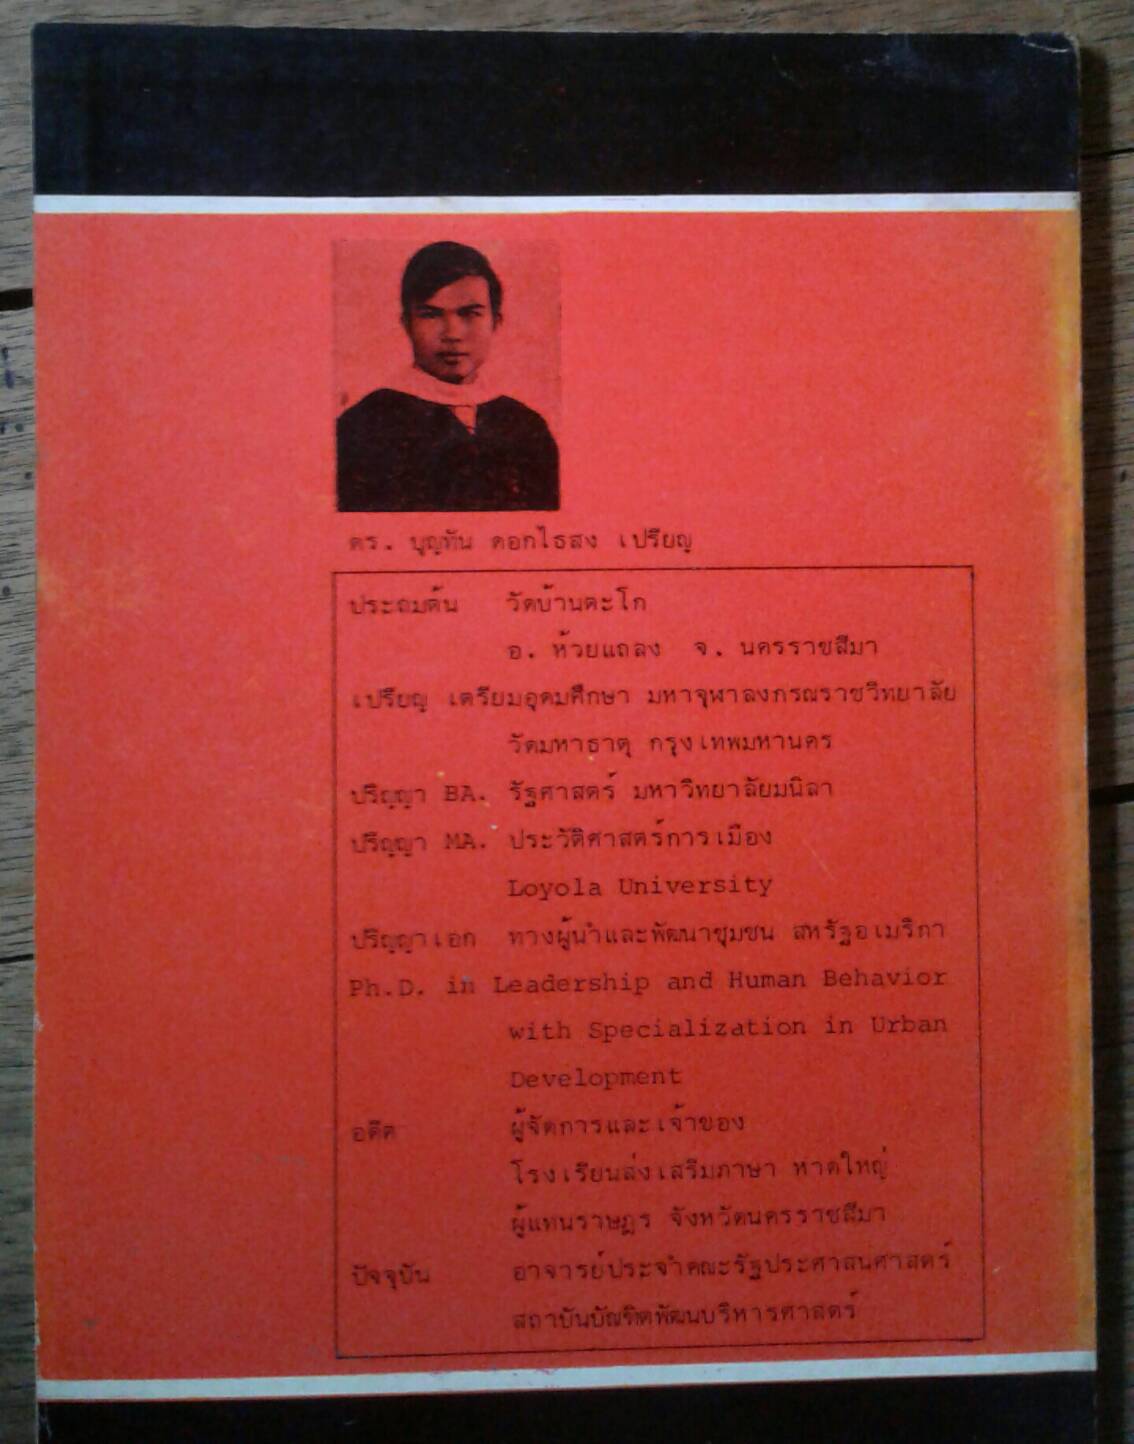 ดร. บุญทัน ดอกไธสง เปรียญ
ประถมต้น วัดบ้านตะโก
อ. ห้วยแถลง จ. นครราชสีมา
เปรียญ เตรียมอุดมศึกษา มหาจุฬาลงกรณราชวิทยาลัย
วัดมหาธาตุ กรุงเทพมหานคร
ปริญญา BA. รัฐศาสตร์ มหาวิทยาลัยมนิลา
ปริญญา MA. ประวัติศาสตร์การเมือง
Loyola University
ปริญญาเอก ทางผู้นำและพัฒนาชุมชน สหรัฐอเมริกา
Ph.D. in Leadership and Human Behavior
with Specialization in Urban
Development
อดีต ผู้จัดการและเจ้าของ
โรงเรียนส่งเสริมภาษา หาดใหญ่
ผู้แทนราษฎร จังหวัดนครราชสีมา
ปัจจุบัน อาจารย์ประจำคณะรัฐประศาสนศาสตร์
สถาบันบัณฑิตพัฒนบริหารศาสตร์